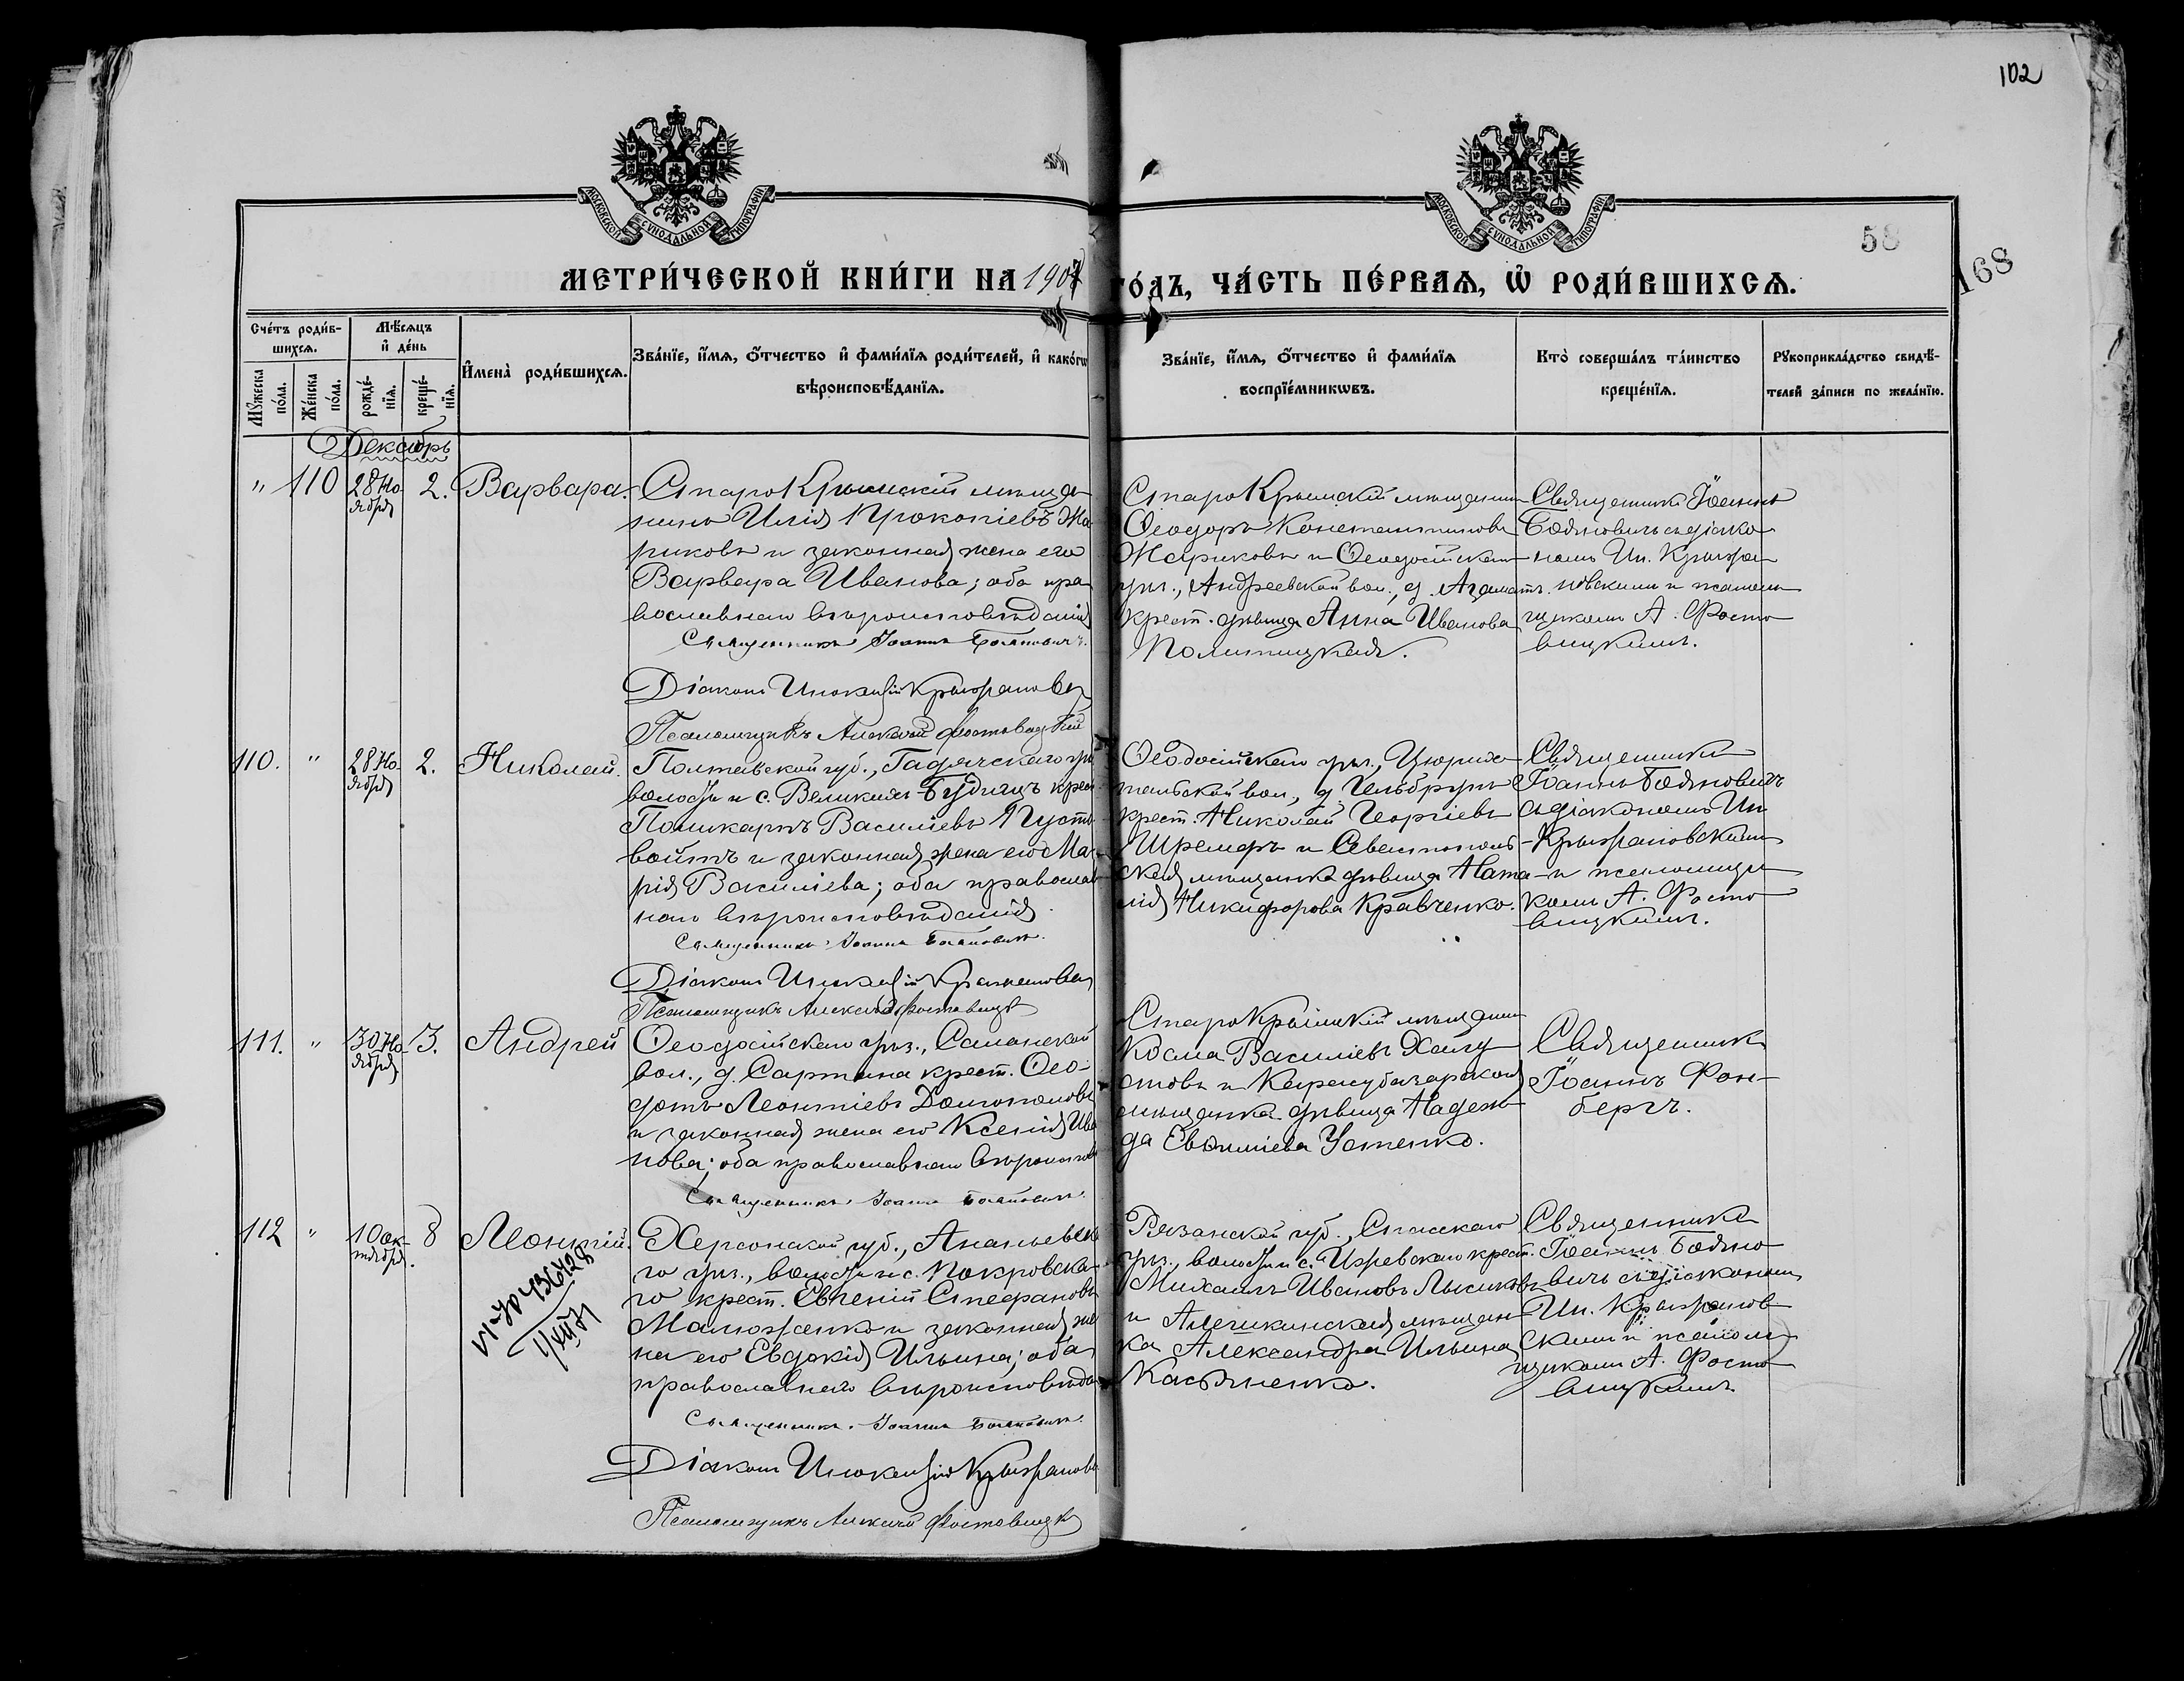 102
МОСКОВСКОЙ СѴНОДАЛЬНОЙ ТИПОГРАФІИ
МОСКОВСКОЙ СѴНОДАЛЬНОЙ ТИПОГРАФІИ
58
168
МЕТРИ́ЧЕСКОЙ КНИ́ГИ НА 1907 ГО́ДЪ, ЧА́СТЬ ПЕ́РВАѦ, Ѽ РОДИ́ВШИХСѦ.
Сче́тъ роди́в-
шихсѧ.
Мꙋ́жеска по́ла.
Же́нска по́ла.
Мѣ́сѧцъ
и҆ де́нь
рожде́-
нїѧ.
креще́-
нїѧ.
И҆мена̀ роди́вшихсѧ.
Зва́нїе, и҆́мѧ, ѻ҆́тчество и҆ фами́лїѧ роди́телей, и҆ како́гѡ
вѣроисповѣ́данїѧ.
Зва́нїе, и҆́мѧ, ѻ҆́тчество и҆ фами́лїѧ
воспрїе́мникѡвъ.
Кто̀ соверша́лъ та́инство
креще́нїѧ.
Рꙋкоприкла́дство свидѣ́-
телей за́писи по жела́нїю.
Декабрь
" 110 28 Но-
ября 2. Варвара.
Старокрымскій мѣща-
нинъ Илія Прокопіевъ Жа-
риковъ и законная жена его
Варвара Иванова; оба пра
вославнаго вѣроисповѣданія
Священникъ Іоаннъ Бояновичъ.
Діаконъ Инокентій Крыжановск
Псаломщикъ Алексѣй Фостовицкій
Старокрымскій мѣщанинъ
Ѳеодоръ Константиновъ
Жариковъ и Ѳеодосійскаго
уѣз., Андреевской вол., д. Агаматъ
крест. дѣвица Анна Иванова
Политицкая.
Священникъ Іоаннъ
Бояновичъ съ діако-
номъ Ин. Крыжа-
новскимъ и псалом-
щикомъ А. Фосто
вицкимъ.
110. " 28 Но-
ября 2. Николай.
Полтавской губ., Гадячскаго уѣз
волости и с. Великихъ-Будищъ крест.
Поликарпъ Василіевъ Пусто
войтъ и законная жена его Ма-
рія Василіева; оба православ
наго вѣроисповѣданія.
Священникъ Іоаннъ Бояновичъ.
Діаконъ Инокентій Крыжановск
Псаломщикъ Алексѣй Фостовицк
Ѳеодосійскаго уѣз., Цюрих-
тальской вол., д.
крест. Николай Георгіевъ
и Севастополь-
ская мѣщанка дѣвица Ната-
лія Никифорова Кравченко.
Священникъ
Іоаннъ Бояновичъ
съ діакономъ Ин
Крыжановскимъ
и псаломщи
комъ А. Фосто
вицкимъ.
111. " 30 Но-
ября 3. Андрей
Ѳеодосійскаго уѣз., Салынской
вол., д. Сартана крест. Ѳео-
дотъ Леонтіевъ Долгополовъ
и законная жена его Ксенія Ива
нова; оба православнаго вѣроиспов
Священникъ Іоаннъ Бояновичъ.
Старокрымскій мѣщанинъ
Косма Василіевъ
и Карасубазарская
мѣщанка дѣвица Надеж-
да Евѳиміева Усенко.
Священникъ
Іоаннъ Фон-
бергъ.
112 " 10 ок-
тября. 8 Леонтій.
VI-ЯО436428
Херсонской губ., Ананьевска
го уѣз., волости и с. Покровска-
го крест. Евгеній Стефановъ
Малюженко и законная же
на его Евдокія Ильина; оба
православнаго вѣроисповѣда
Священникъ Іоаннъ Бояновичъ.
Діаконъ Инокентій Крыжановс
Псаломщикъ Алексѣй Фостовицк
Рязанской губ., Спасскаго
уѣз., волости и с. Ижевскаго крест.
Михаилъ Ивановъ Лысиковъ
и Алешкинская мѣщан-
ка Александра Ильина
Касьяненко.
Священникъ
Іоаннъ Бояно
вичъ съ діакономъ
Ин. Крыжанов
скимъ и псалом-
щикомъ А. Фосто
вицкимъ